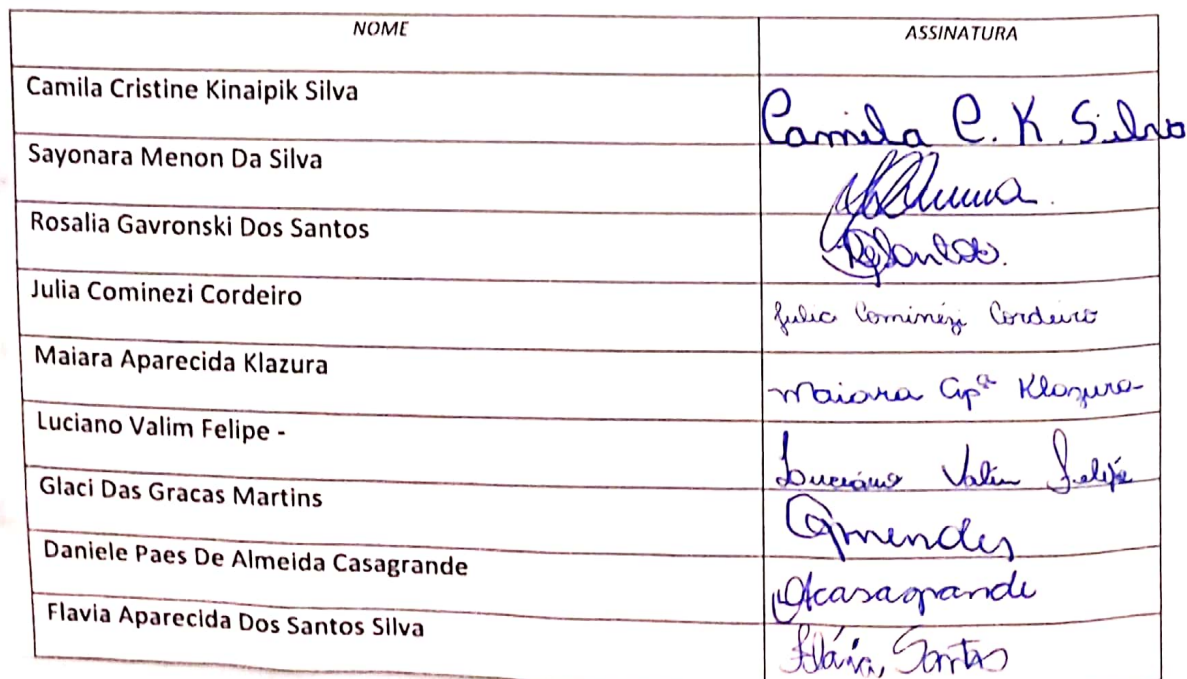 NOME ASSINATURA
Camila Cristine Kinaipik Silva Camila C. K. Silva
Sayonara Menon Da Silva
Rosalia Gavronski Dos Santos RgSantos.
Julia Cominezi Cordeiro Julia Cominezi Cordeiro
Maiara Aparecida Klazura Maiara Apª Klazura
Luciano Valim Felipe - Luciano Valim Felipe
Glaci Das Gracas Martins Gmendes
Daniele Paes De Almeida Casagrande Casagrande
Flavia Aparecida Dos Santos Silva Flávia, Santos